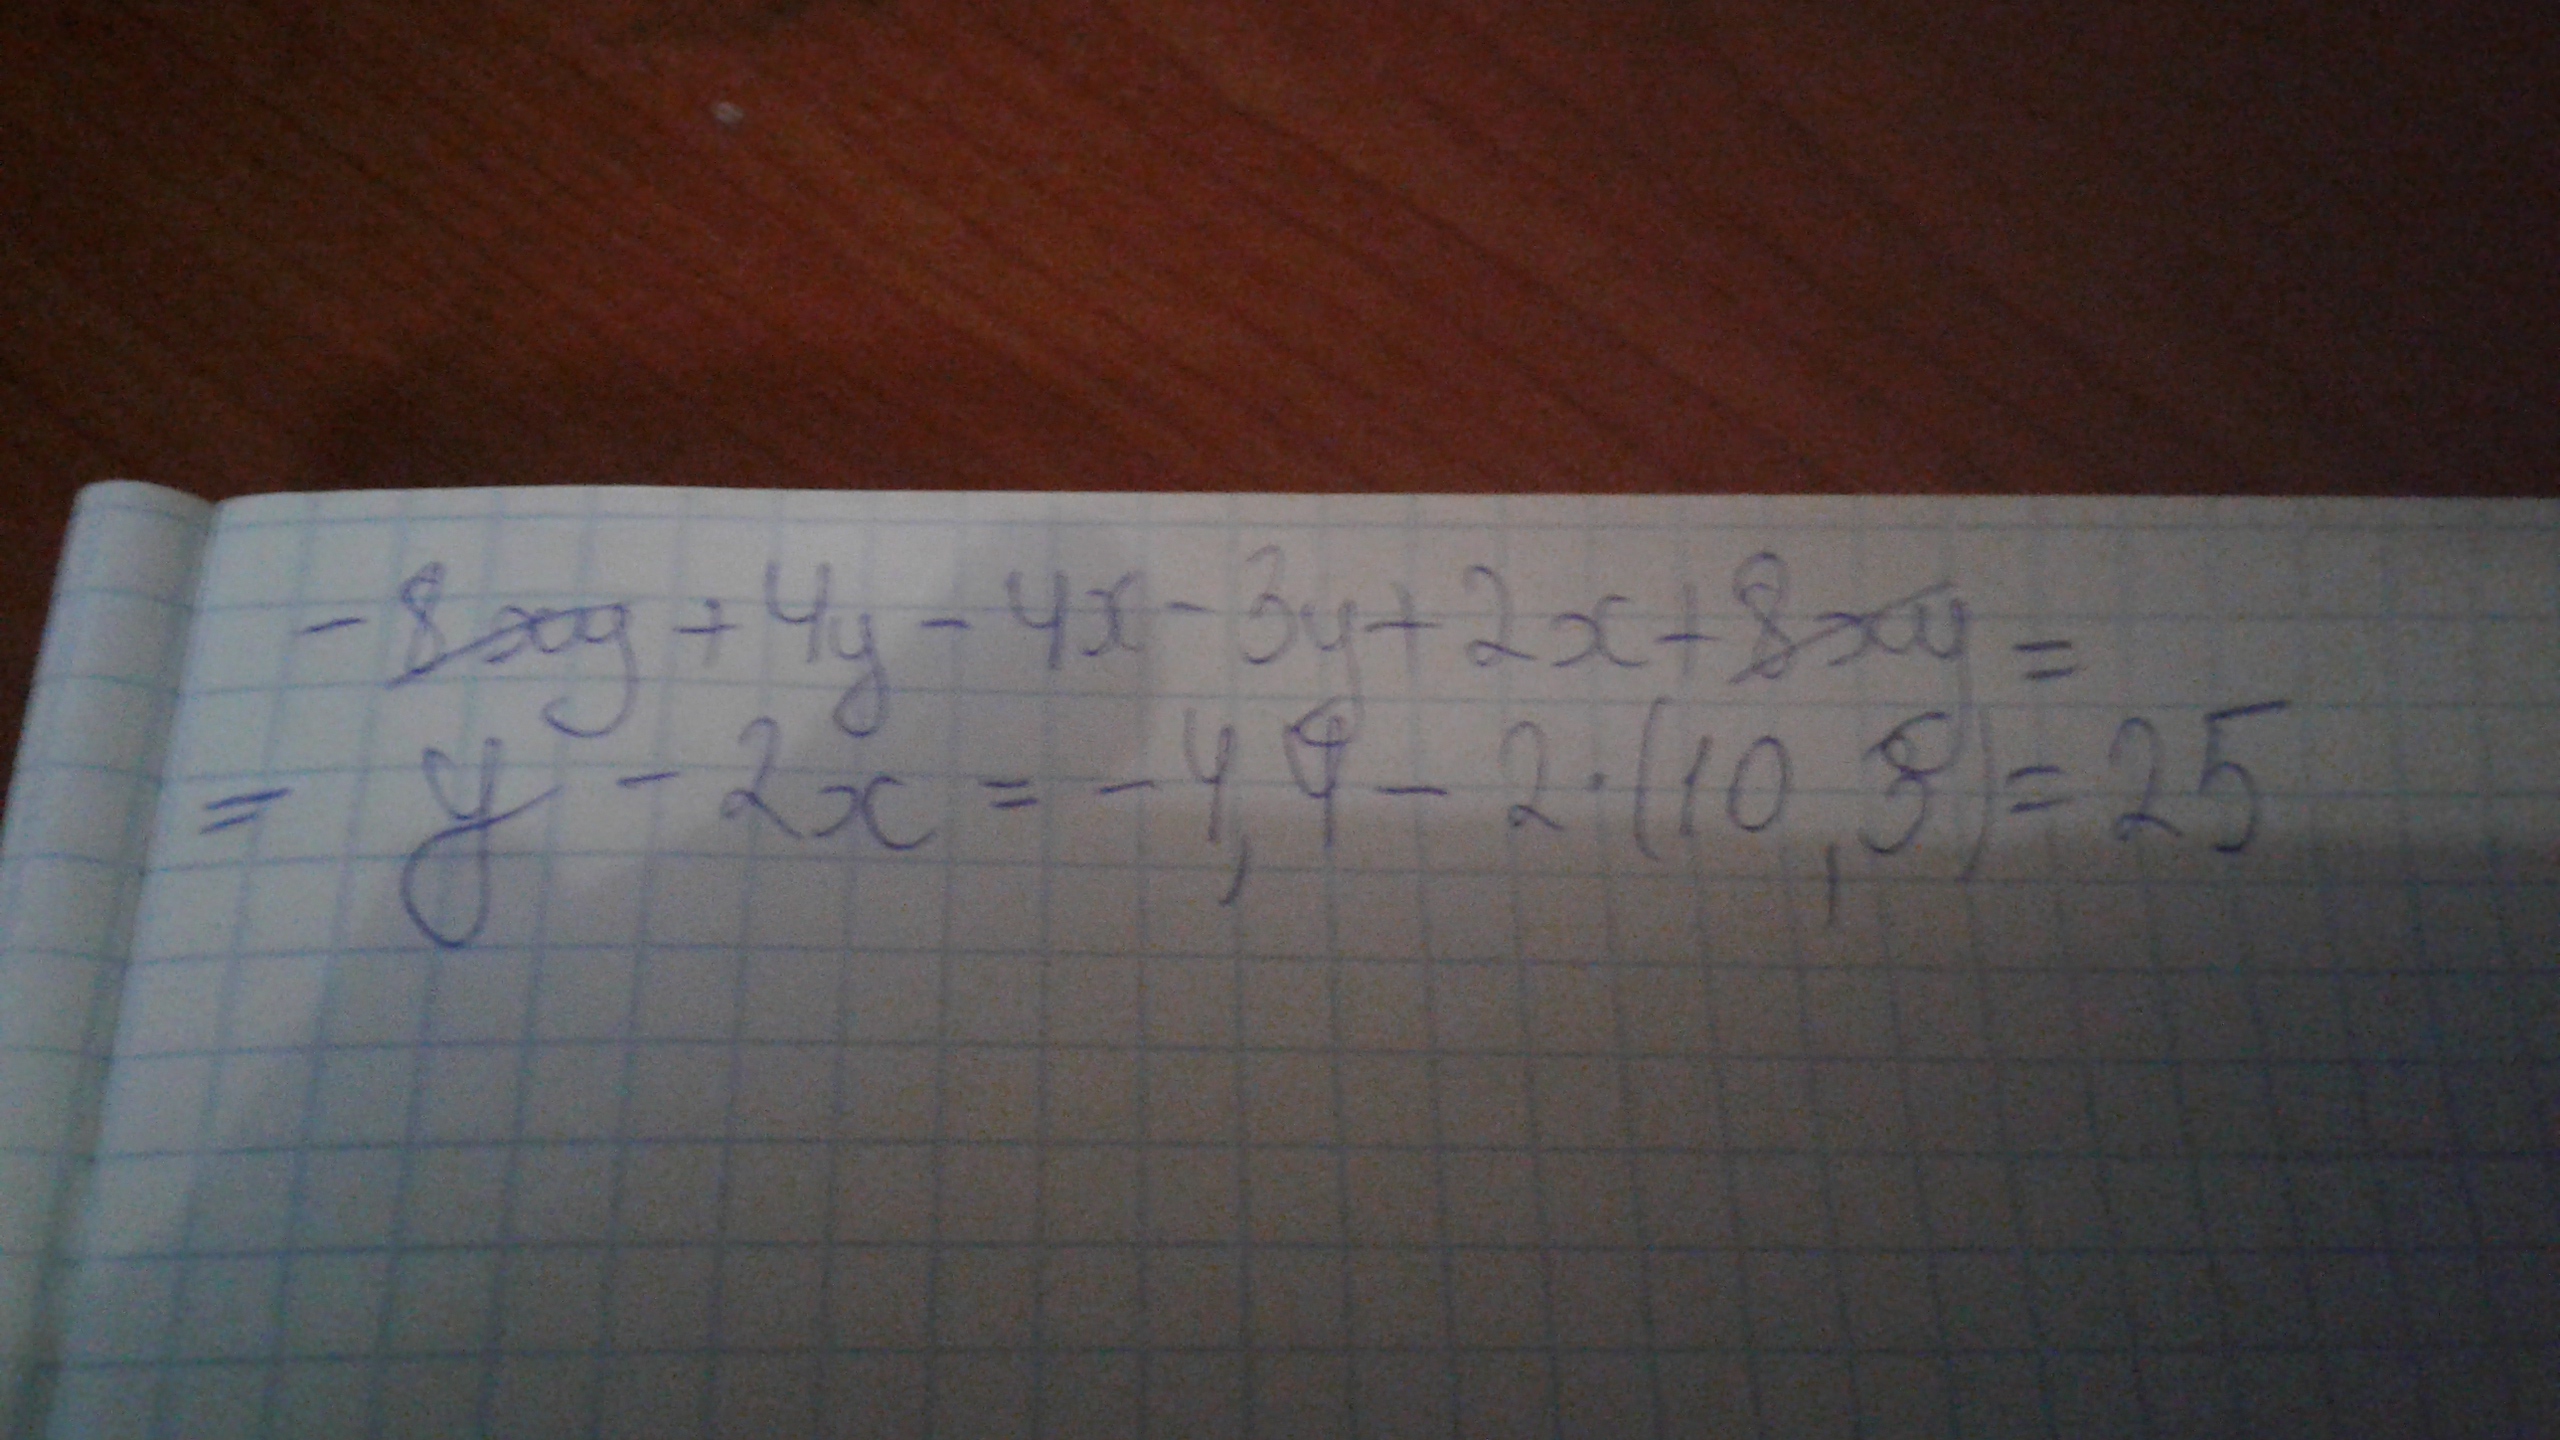 - 8xy + 4y - 4x - 3y + 2x + 8xy =
= y - 2x = - 4,4 - 2 · (10,3) = 25